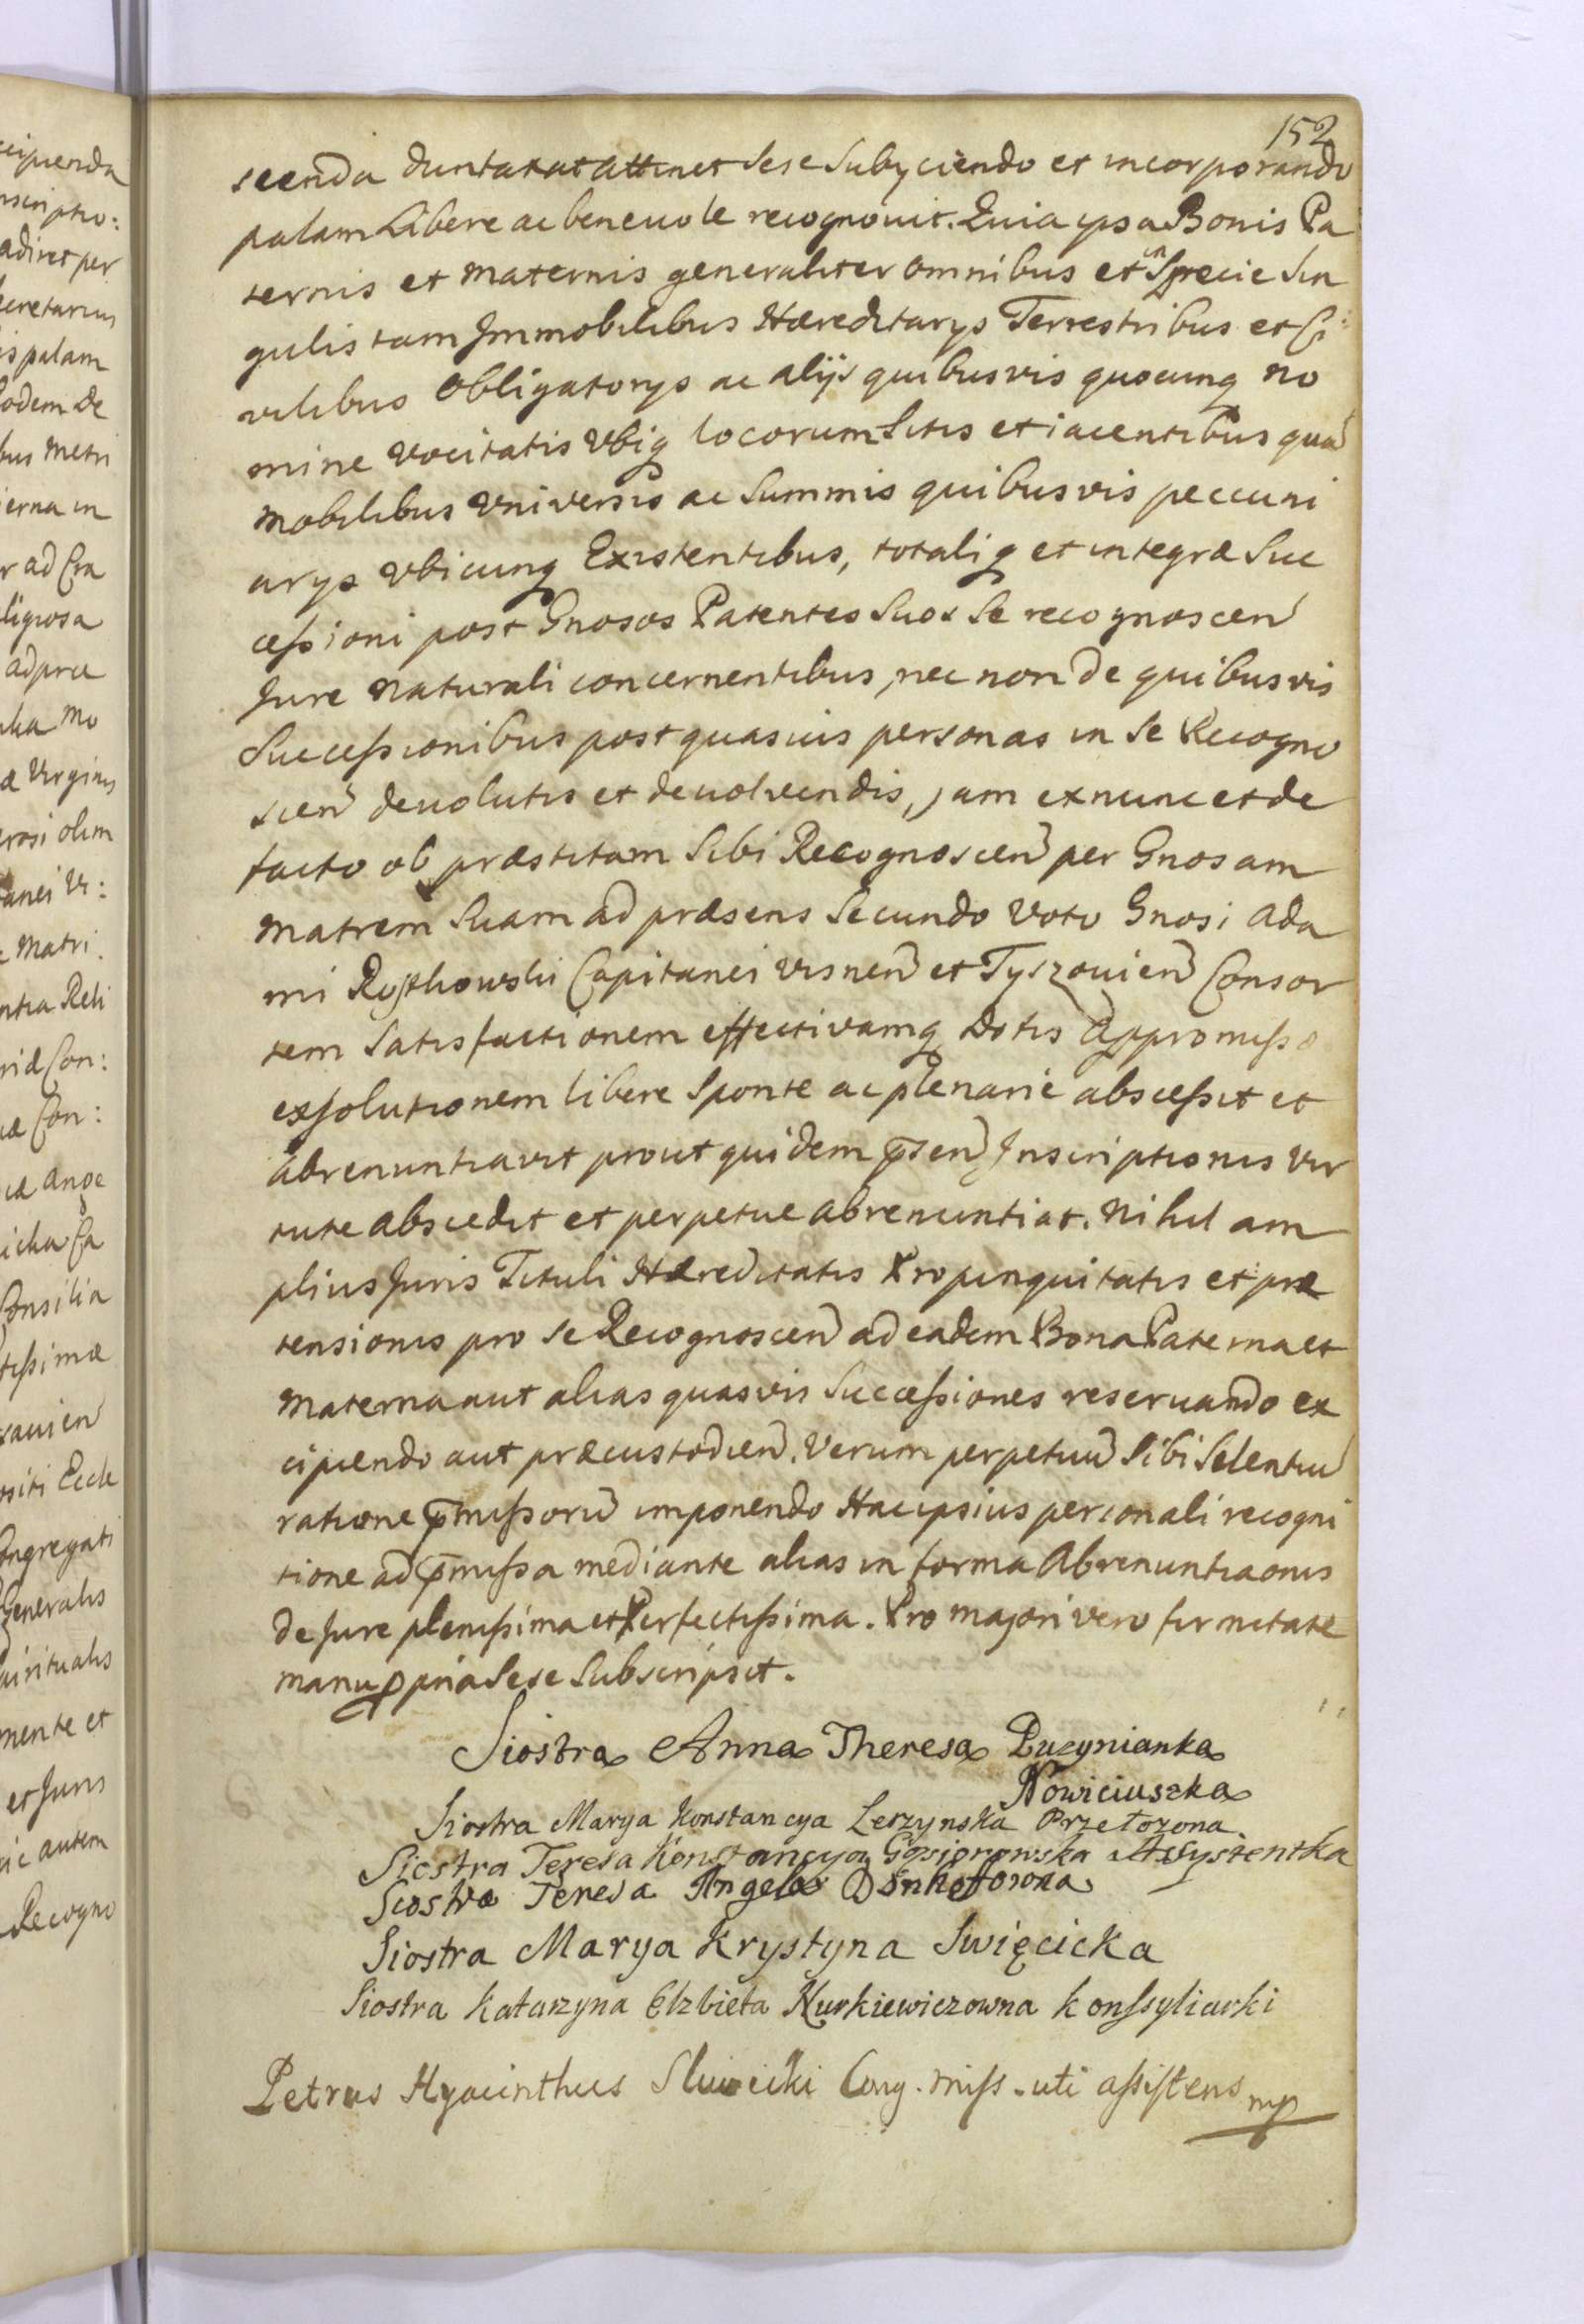 152
scenda duntaxat attinet Sese Subyciendo et incorporando
palam Libere ac beneuole recognouit. Quia ipsa Bonis Pa
ternis et Maternis generaliter omnibus et in Specie Sin
gulis tam Immobilibus Hæreditarys Terrestribus et Ci:
vilibus Obligatorys ac alijs quibusvis quocunq no
mine vocitatis Vbiq locorum Sitis et iacentibus qua
Mobilibus Vniversis ac Summis quibusvis peccuni
arys Vbicunq Existentibus, totaliq et integræ Suc
cessioni post Gnosos Parentes Suos Se recognoscen
Jure Naturali concernentibus, nec non de quibusvis
Successionibus post quasuis personas in Se Recogno
scen deuolutis et deuolvendis, jam ex nunc et de
facto ob præstitam Sibi Recognoscen per Gnosam
Matrem Suam ad præsens Secundo Voto Gnosi Ada
mi Capitanei Visnen et Tyszouien Consor
tem Satisfactionem effectivamq Dotis Appromissæ
exsolutionem libere Sponte ac plenarie abscessit et
abrenuntiavit prout quidem pnsen Inscriptionis Vir
tute abscedit et perpetue abrenuntiat. Nihil am
plius Juris Tituli Hæreditatis Propinquitatis et præ
tensionis pro Se Recognoscen ad eadem Bona Paterna et
Materna aut alias quasvis Successiones reservando ex
cipiendo aut præcustodien. Verum perpetuu Sibi Silentiu
ratione pmissoru imponendo Hac ipsius personali recogni
tione ad pmissa mediante alias in forma Abrenuntiaonis
de Jure plenissima et Perfectissima. Pro majori vero firmitate
manu ppria Sese Subscripsit.
Siostra Anna Theresa Puzynianka
Nowiciuszka
Siostra Marya Konstancya Leszynska Przełozona
Siostra Teresa Konstancya Gosiorowska Asystentka
Siostra Teresa Angela Denhoffowna
Siostra Marya Krystyna Swięcicka
Siostra Katarzyna Elzbieta Kurkiewiczowna konssyliarki
Petrus Hyacinthus Sliwicki Cong. miss. uti assistens mp